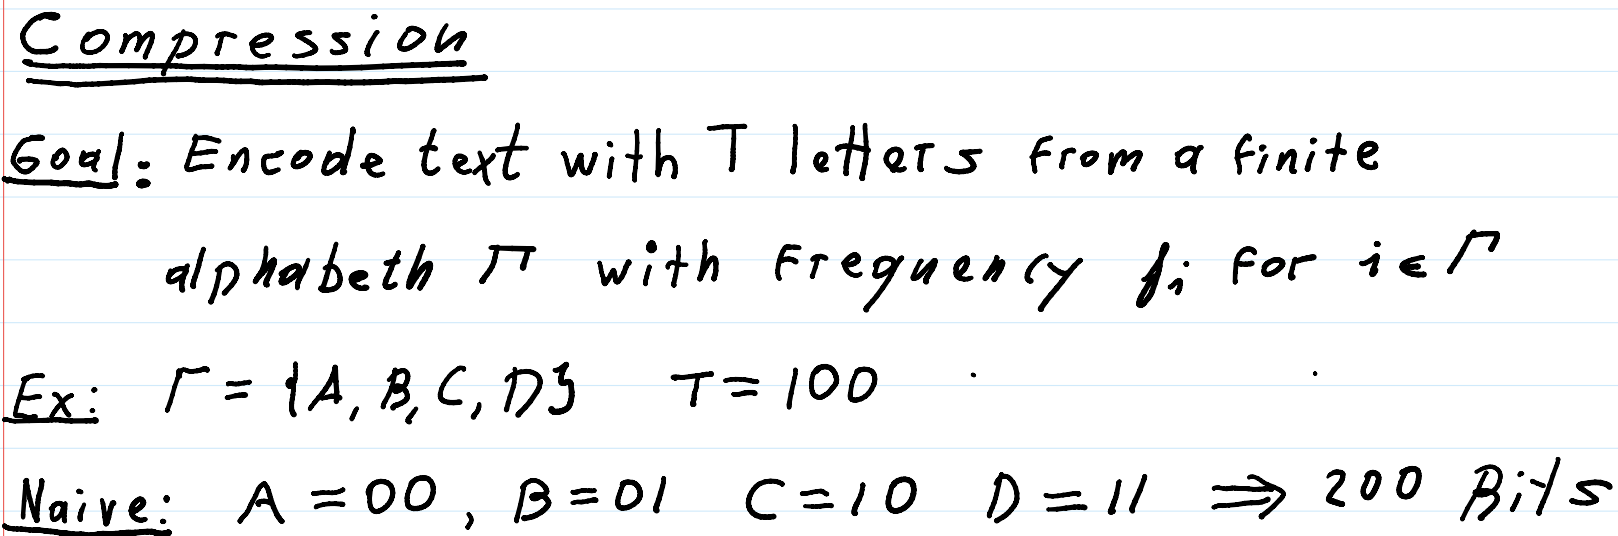 Compression
Goal: Encode text with T letters from a finite
alphabeth Γ with Frequency fᵢ for i ∈ Γ
Ex: Γ = {A, B, C, D} T = 100
Naive: A = 00, B = 01 C = 10 D = 11 ⇒ 200 Bits